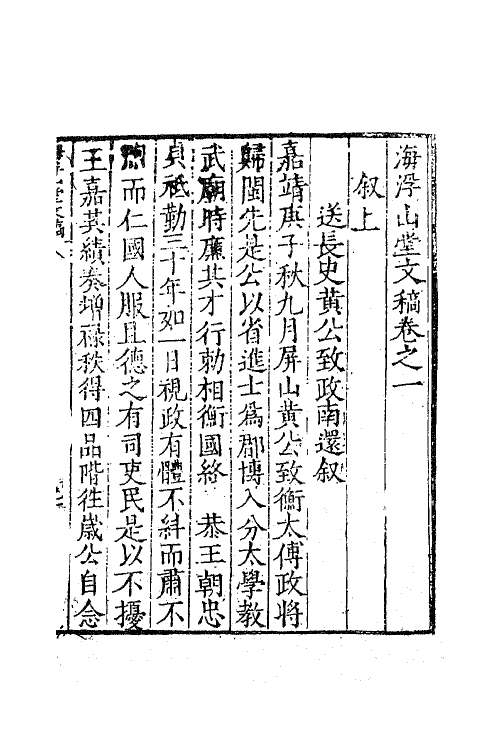 海浮山堂文稿卷之一
叙上
送長史黃公致政南還叙
嘉靖庚子秋九月屏山黃公致衡太傅政將
歸閩先是公以省進士爲郡博入分太學教
武廟時廉其才行勅相衡國終 恭王朝忠
貞祗勤三十年如一日視政有體不糾而肅不
而仁國人服且德之有司吏民是以不擾
王嘉其績奏增祿秩得四品階徃歲公自念